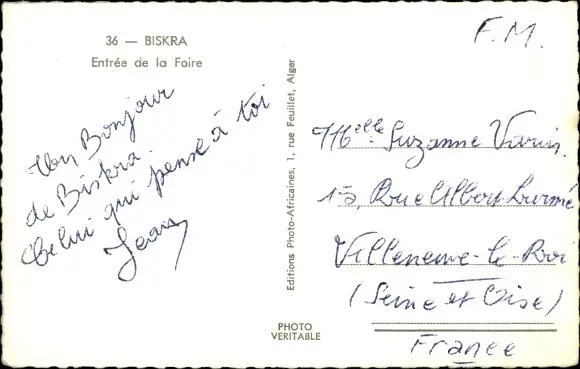 36 — BISKRA
Entrée de la Foire
F.M.
Un Bonjour
de Biskra.
Celui qui pense à toi
Jean
Editions Photo-Africaines, 1, rue Feuillet, Alger
Melle Suzanne
Rue Albert
Villeneuve-le-Roi
(Seine et Oise)
France
PHOTO
VERITABLE